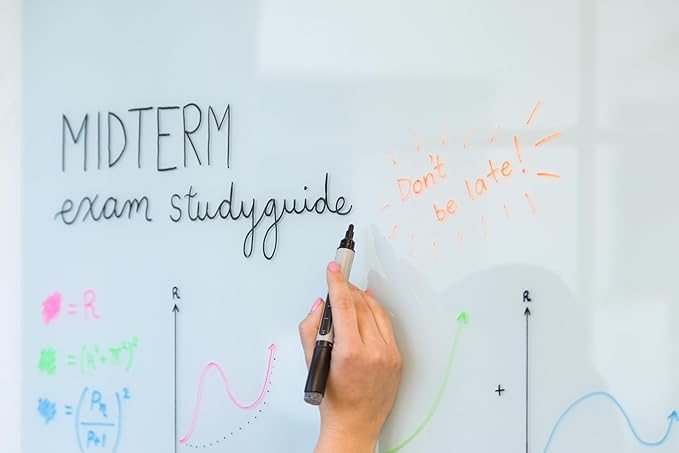 MIDTERM
exam studyguide
Don't
be late!
= R
= (x²+π²)²
R
R
+